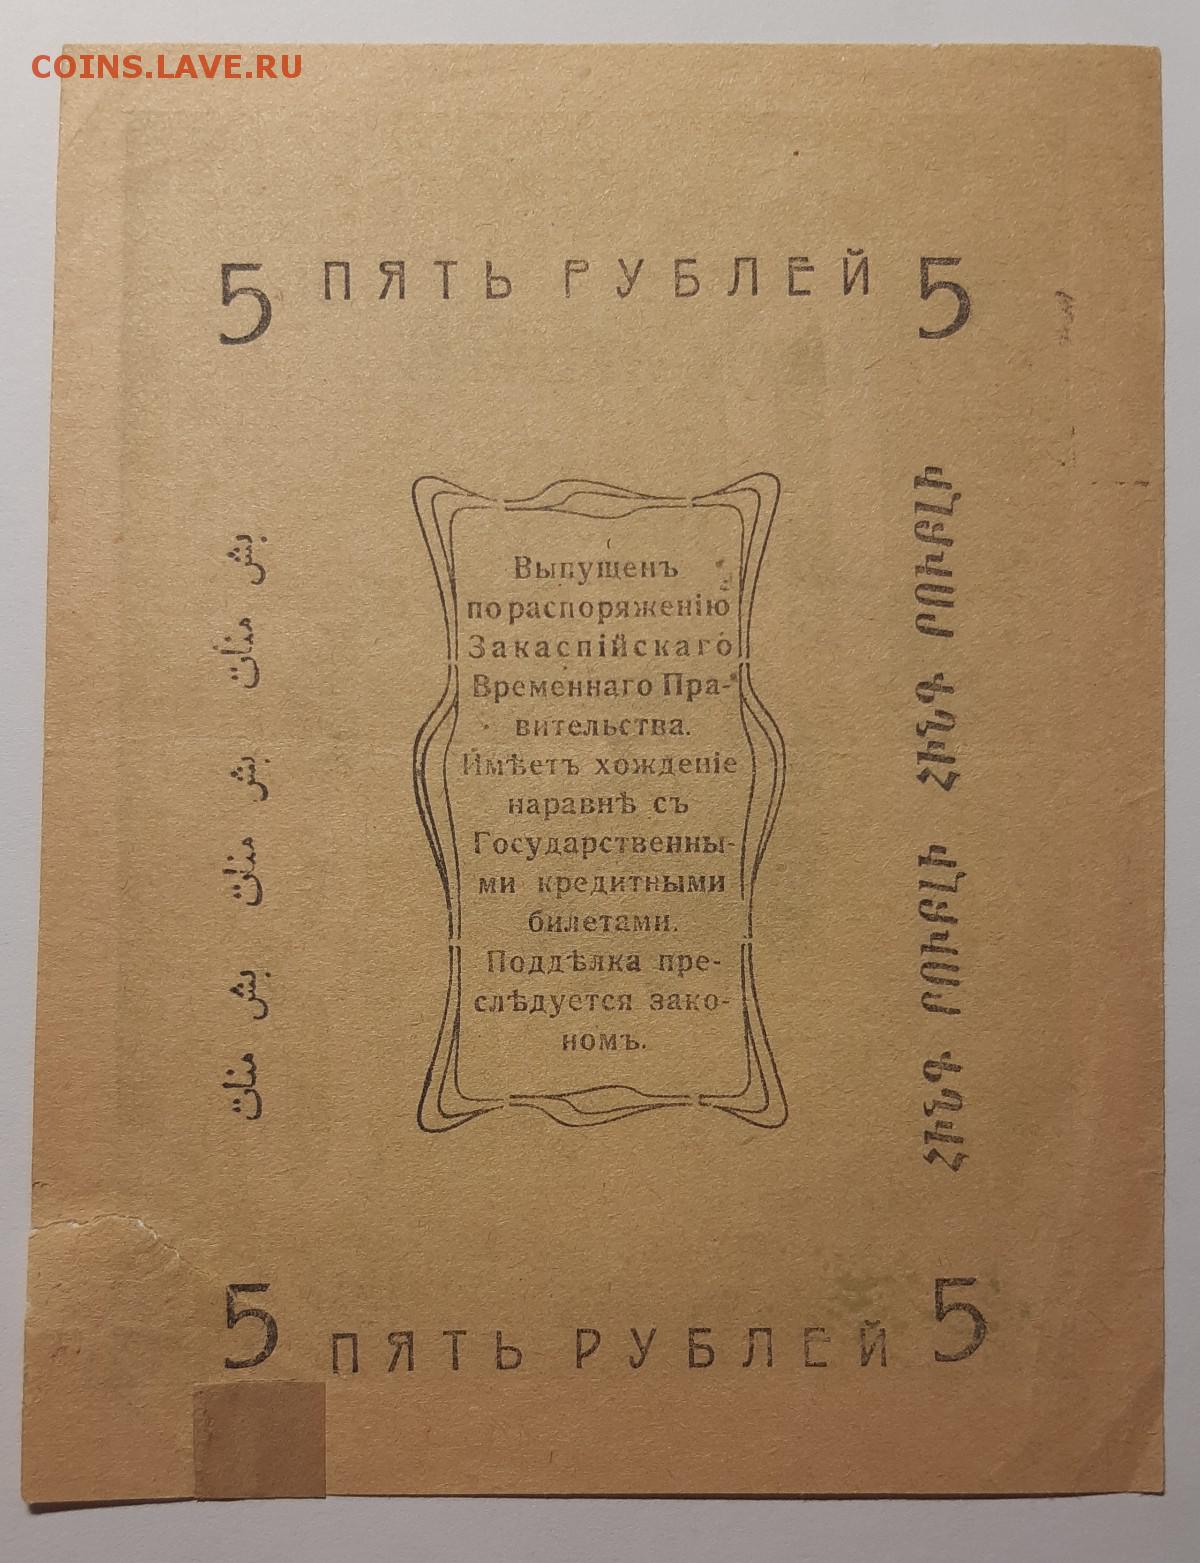 COINS.LAVE.RU
5 ПЯТЬ РУБЛЕЙ 5
Выпущенъ
по распоряженію
Закаспійскаго
Временнаго Пра-
вительства.
Имѣетъ хожденіе
наравнѣ съ
Государственны-
ми кредитными
билетами.
Поддѣлка пре-
слѣдуется зако-
номъ.
بش منات بش منات بش منات
ՀԻՆԳ ՐՈՒԲԼԻ ՀԻՆԳ ՐՈՒԲԼԻ
5 ПЯТЬ РУБЛЕЙ 5